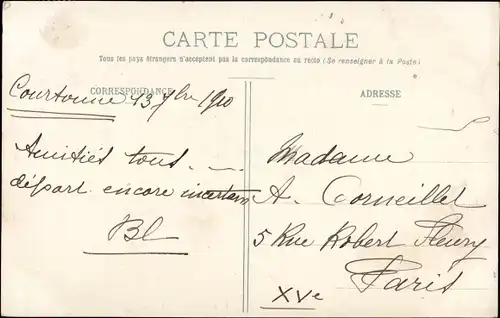 CARTE POSTALE
Tous les pays étrangers n'acceptent pas la correspondance au recto (Se renseigner à la Poste)
CORRESPONDANCE
Courtonne 13 7bre 1910
Amitiés tous. -- 
départ encore incertain
BL
ADRESSE
Madame
A. Corneillet
5 Rue Robert Fleury
Paris
XVe